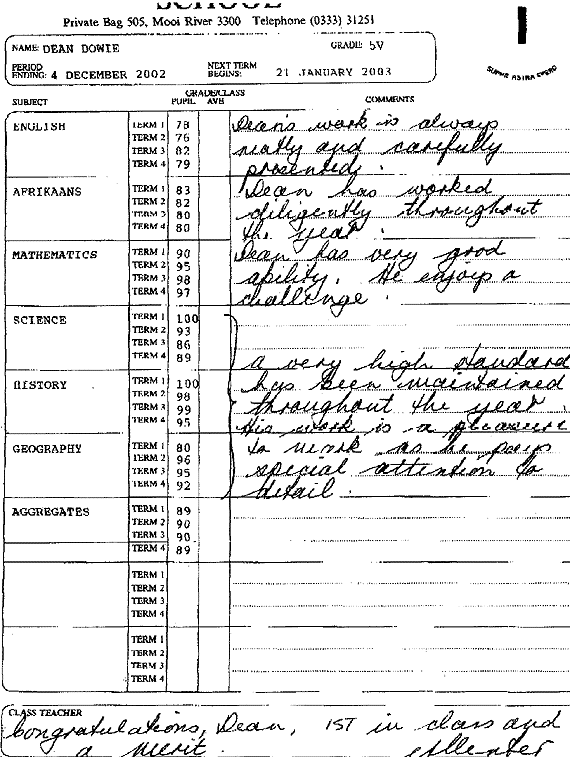 SCHOOL
Private Bag 505, Mooi River 3300 Telephone (0333) 31251
NAME: DEAN DOWIE GRADE: 5V
PERIOD ENDING: 4 DECEMBER 2002 NEXT TERM BEGINS: 21 JANUARY 2003
SUPER ASTRA SPERO
GRADE/CLASS
SUBJECT PUPIL AVE COMMENTS
ENGLISH TERM 1 78 Dean's work is always
TERM 2 76 neatly and carefully
TERM 3 82 presented.
TERM 4 79
AFRIKAANS TERM 1 83 Dean has worked
TERM 2 82 diligently throughout
TERM 3 80 the year.
TERM 4 80
MATHEMATICS TERM 1 90 Dean has very good
TERM 2 95 ability. He enjoys a
TERM 3 98 challenge.
TERM 4 97
SCIENCE TERM 1 100
TERM 2 93
TERM 3 86
TERM 4 89 a very high standard
HISTORY TERM 1 100 has been maintained
TERM 2 98 throughout the year.
TERM 3 99 His work is a pleasure
TERM 4 95
GEOGRAPHY TERM 1 80 to mark as he pays
TERM 2 96 special attention to
TERM 3 95 detail.
TERM 4 92
AGGREGATES TERM 1 89
TERM 2 90
TERM 3 90
TERM 4 89
TERM 1
TERM 2
TERM 3
TERM 4
TERM 1
TERM 2
TERM 3
TERM 4
CLASS TEACHER
Congratulations, Dean, 1ST in class and
a merit.